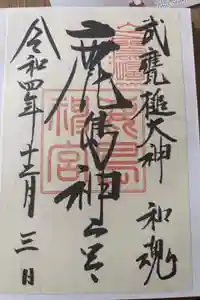 武甕槌大神 和魂
鹿島神宮
令和四年 十二月 三日